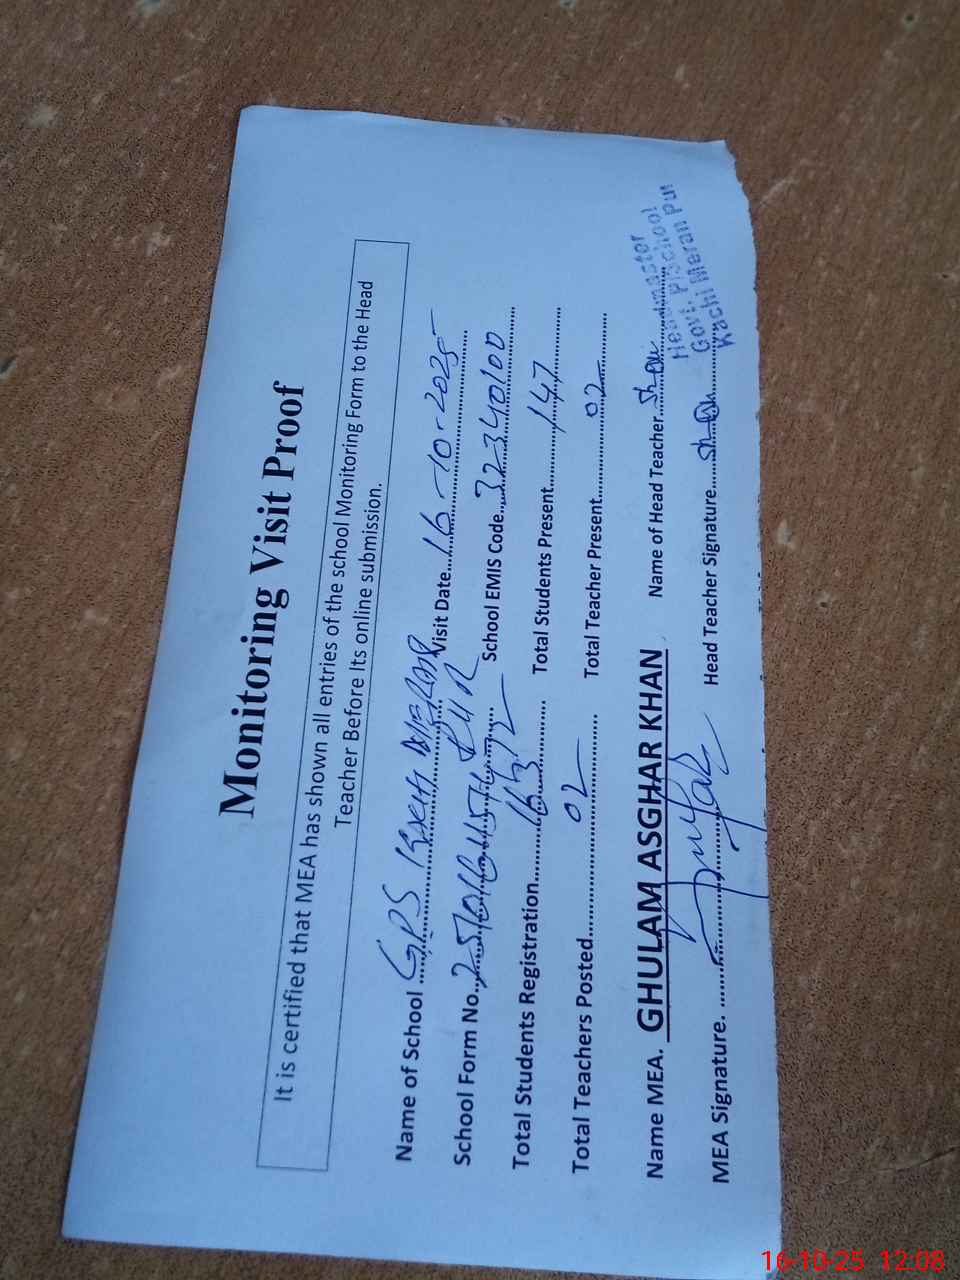 Monitoring Visit Proof
It is certified that MEA has shown all entries of the school Monitoring Form to the Head
Teacher Before Its online submission.
Name of School GPS KACHI MERAN PUR Visit Date 16-10-2025
School Form No. School EMIS Code 32340100
Total Students Registration Total Students Present 147
Total Teachers Posted 02 Total Teacher Present 02
Name MEA. GHULAM ASGHAR KHAN Name of Head Teacher
MEA Signature. Head Teacher Signature
Headmaster
Govt. P/School
Kachi Meran Pur
16-10-25 12:08